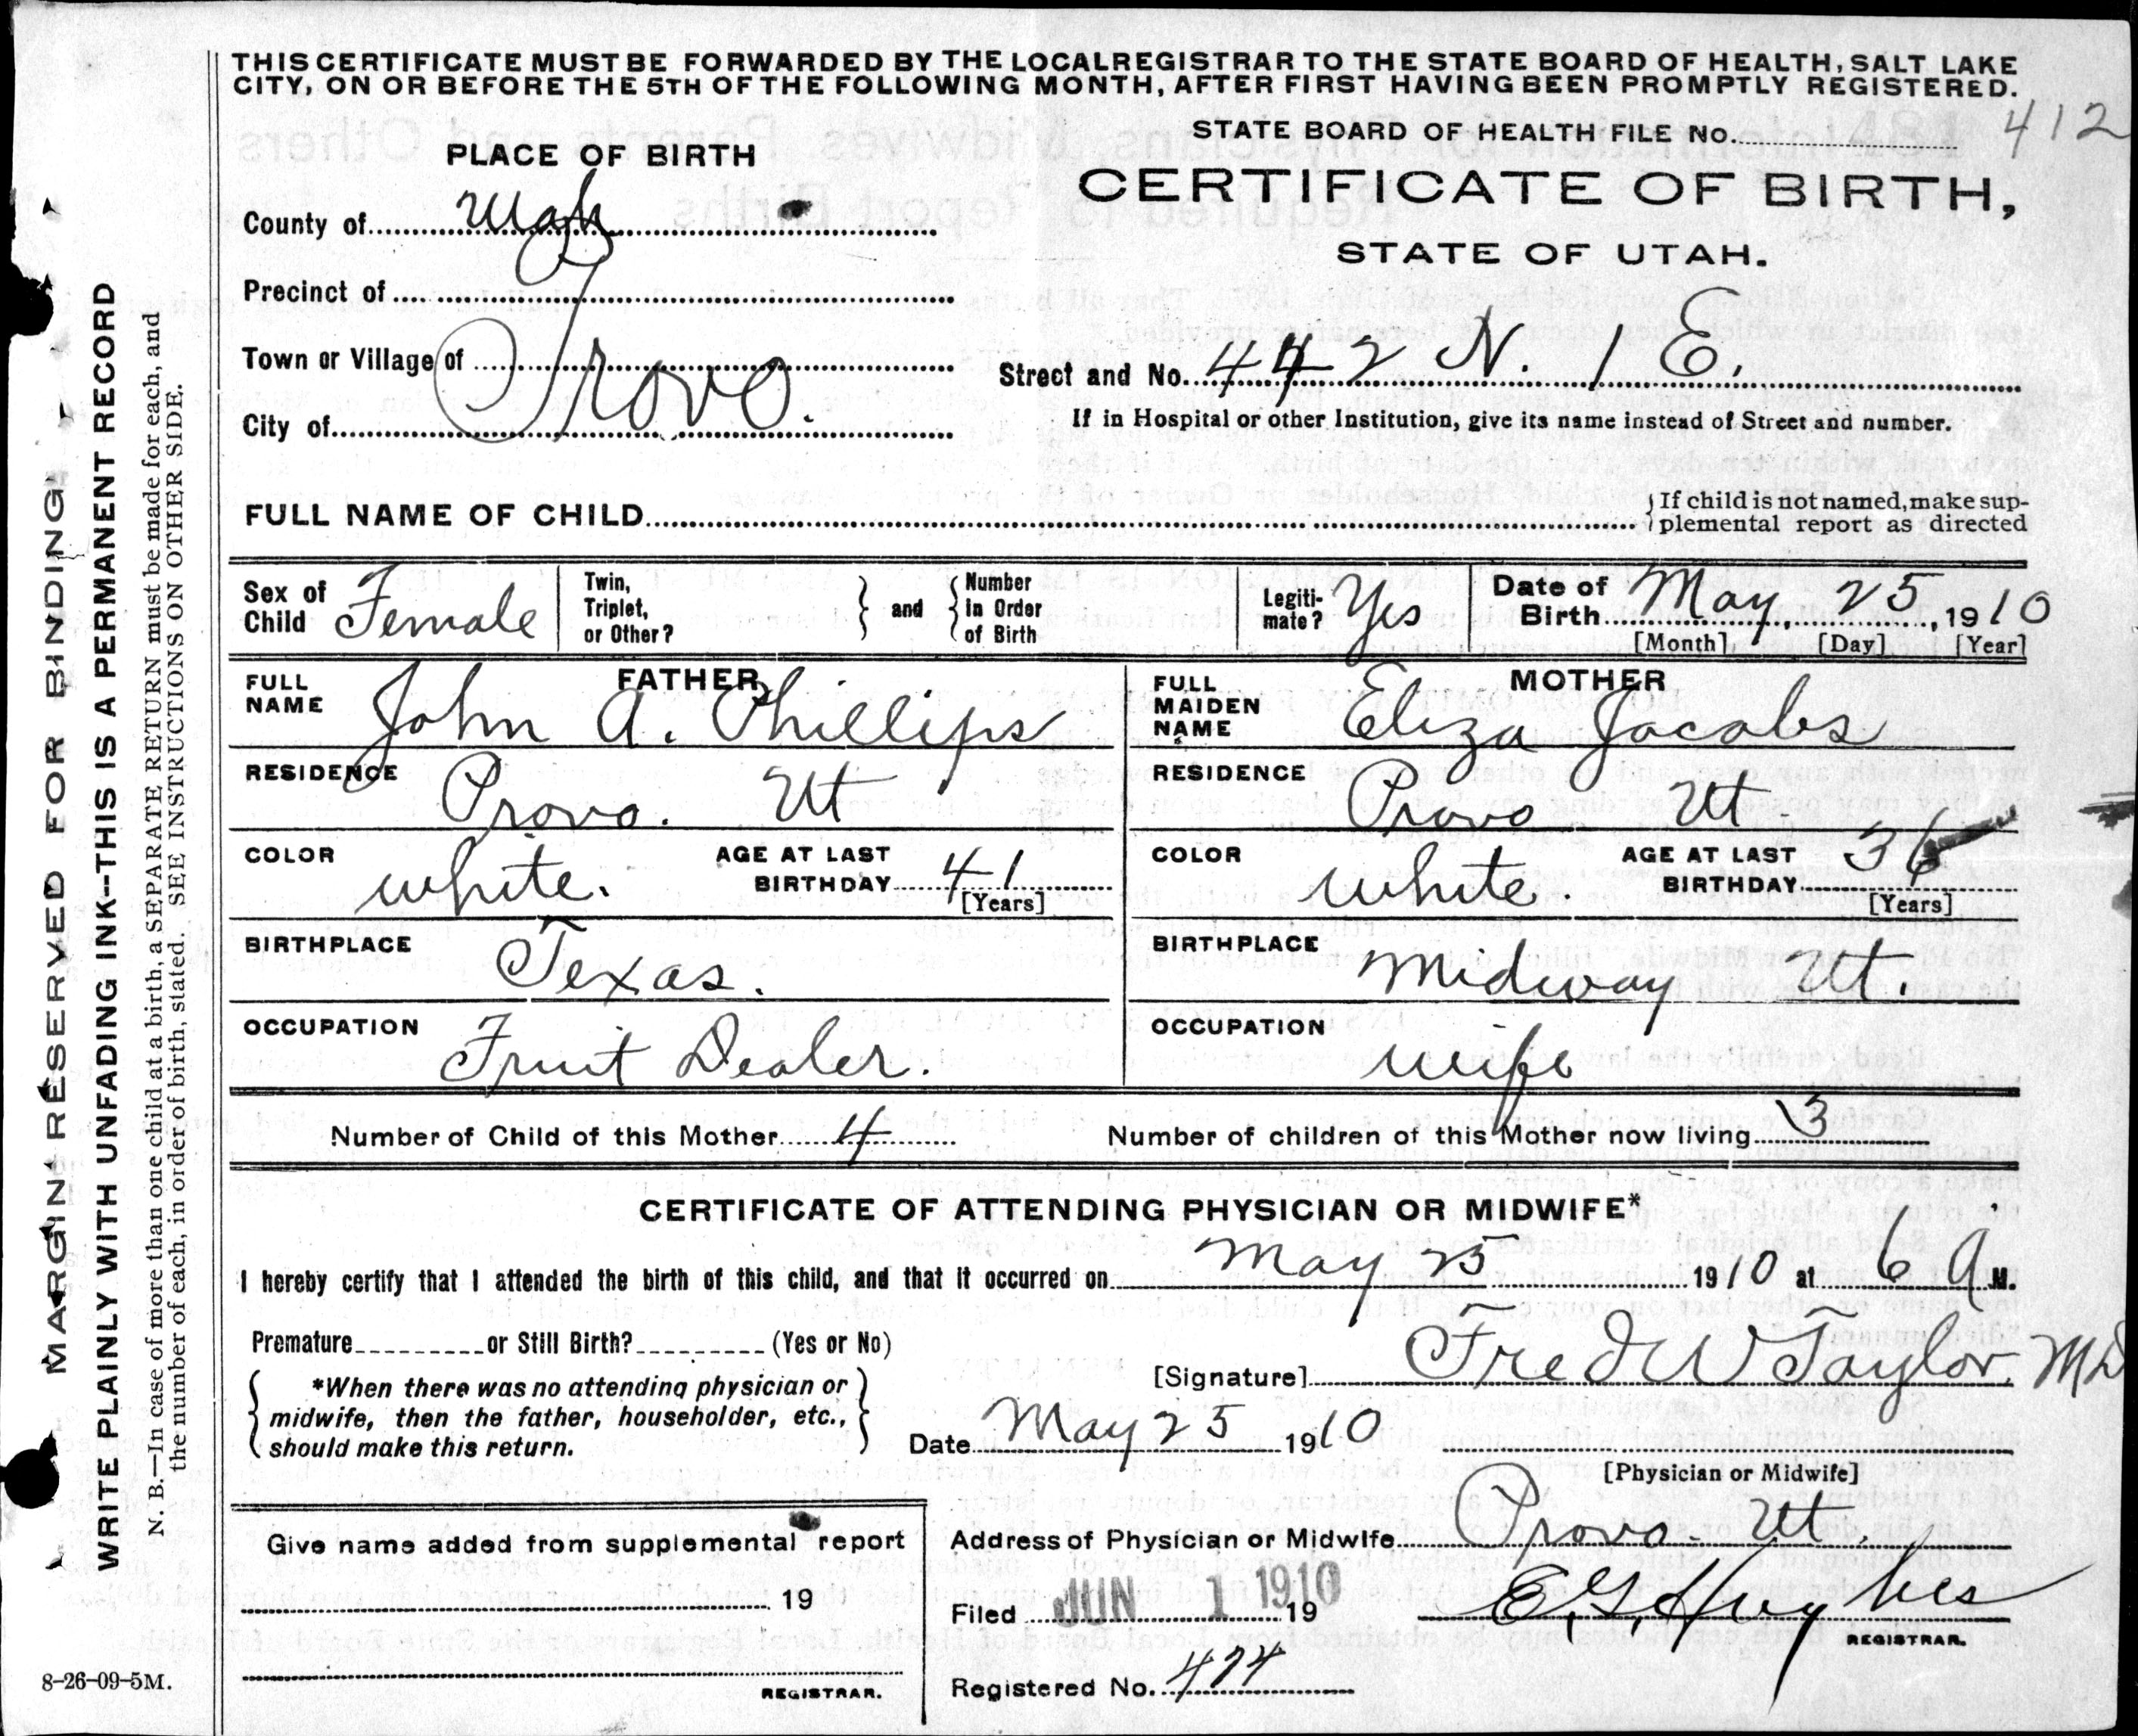 THIS CERTIFICATE MUST BE FORWARDED BY THE LOCAL REGISTRAR TO THE STATE BOARD OF HEALTH, SALT LAKE
CITY, ON OR BEFORE THE 5TH OF THE FOLLOWING MONTH, AFTER FIRST HAVING BEEN PROMPTLY REGISTERED.
STATE BOARD OF HEALTH FILE No. 412
PLACE OF BIRTH
CERTIFICATE OF BIRTH,
STATE OF UTAH.
County of Utah
Precinct of
Town or Village of Provo.
City of
Street and No. 442 N. 1 E.
If in Hospital or other Institution, give its name instead of Street and number.
FULL NAME OF CHILD
If child is not named, make sup-
plemental report as directed
Sex of Child Female
Twin, Triplet, or Other?
and
Number in Order of Birth
Legiti-mate? Yes
Date of Birth May, 25, 1910
[Month] [Day] [Year]
FATHER
FULL NAME John A. Phillips
RESIDENCE Provo. Ut
COLOR white.
AGE AT LAST BIRTHDAY 41
[Years]
BIRTHPLACE Texas.
OCCUPATION Fruit Dealer.
MOTHER
FULL MAIDEN NAME Eliza Jacobs
RESIDENCE Provo Ut.
COLOR white.
AGE AT LAST BIRTHDAY 36
[Years]
BIRTHPLACE Midway Ut.
OCCUPATION wife
Number of Child of this Mother 4
Number of children of this Mother now living 3
CERTIFICATE OF ATTENDING PHYSICIAN OR MIDWIFE*
I hereby certify that I attended the birth of this child, and that it occurred on May 25 1910 at 6 A M.
Premature or Still Birth? (Yes or No)
[Signature] Fred W Taylor MD
*When there was no attending physician or
midwife, then the father, householder, etc.,
should make this return.
Date May 25 1910
[Physician or Midwife]
Give name added from supplemental report
19
REGISTRAR.
Address of Physician or Midwife Provo. Ut.
Filed JUN 1 1910 19
E. G. Hughes
REGISTRAR.
Registered No. 474
8-26-09-5M.
MARGIN RESERVED FOR BINDING
WRITE PLAINLY WITH UNFADING INK--THIS IS A PERMANENT RECORD
N. B.—In case of more than one child at a birth, a SEPARATE RETURN must be made for each, and
the number of each, in order of birth, stated. SEE INSTRUCTIONS ON OTHER SIDE.